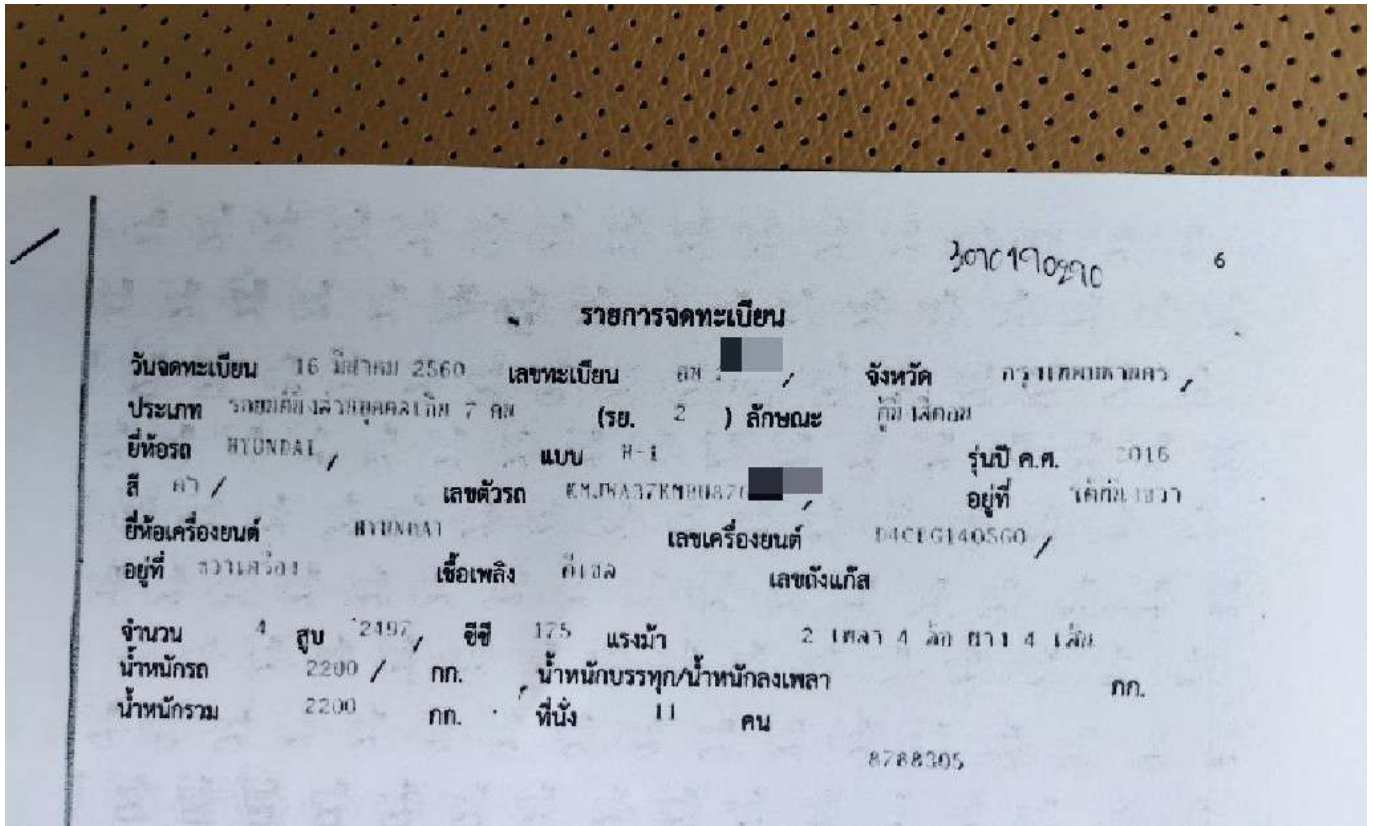 6
รายการจดทะเบียน
วันจดทะเบียน 16 มีนาคม 2560 เลขทะเบียน จังหวัด กรุงเทพมหานคร
ประเภท รถยนต์นั่งส่วนบุคคลเกิน 7 คน (รย. 2 ) ลักษณะ
ยี่ห้อรถ HYUNDAI แบบ H-1 รุ่นปี ค.ศ. 2016
สี ดำ เลขตัวรถ อยู่ที่
ยี่ห้อเครื่องยนต์ HYUNDAI เลขเครื่องยนต์
อยู่ที่ ขวาเครื่อง เชื้อเพลิง ดีเซล เลขถังแก๊ส
จำนวน 4 สูบ 2497 ซีซี 175 แรงม้า 2 เพลา 4 ล้อ ยาง 4 เส้น
น้ำหนักรถ 2200 กก. น้ำหนักบรรทุก/น้ำหนักลงเพลา กก.
น้ำหนักรวม 2200 กก. ที่นั่ง 11 คน
8788305